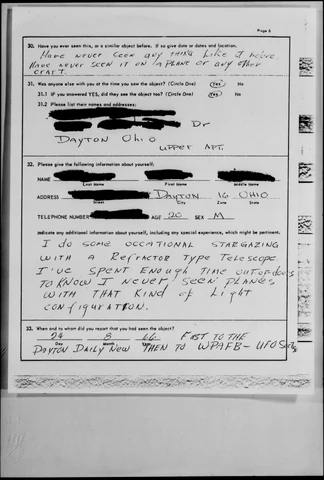 Page 6
30. Have you ever seen this, or a similar object before. If so give date or dates and location.
HAVE NEVER SEEN ANY THING LIKE IT BEFORE
HAVE NEVER SEEN IT ON A PLANE OR ANY OTHER
CRAFT.
31. Was anyone else with you at the time you saw the object? (Circle One) Yes No
31.1 IF you answered YES, did they see the object too? (Circle One) Yes No
31.2 Please list their names and addresses:
Dr
DAYTON OHIO
UPPER APT.
32. Please give the following information about yourself:
NAME
Last Name First Name Middle Name
ADDRESS DAYTON 16 OHIO
Street City Zone State
TELEPHONE NUMBER AGE 20 SEX M
Indicate any additional information about yourself, including any special experience, which might be pertinent.
I DO SOME OCCATIONAL STARGAZING
WITH A REFRACTOR TYPE TELESCOPE
I'VE SPENT ENOUGH TIME OUT OF DOORS
TO KNOW I NEVER SEEN PLANES
WITH THAT KIND OF LIGHT
CONFIGURATION.
33. When and to whom did you report that you had seen the object?
24 8 66 FIRST TO THE
Day Month Year
DAYTON DAILY NEW THEN TO WPAFB - UFO